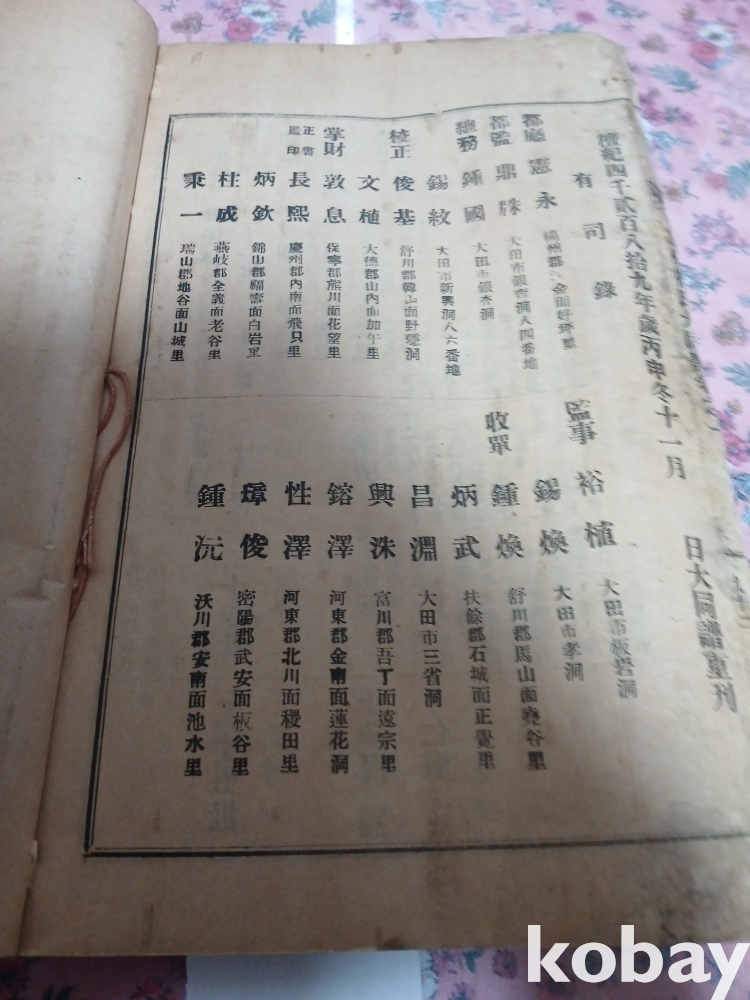 檀紀四千貳百八拾九年歲丙申冬十一月 日大同譜重刊
有司錄
都廳 憲永
都監 鼎 大田市銀杏洞八四番地
總務 鍾國 大田市銀杏洞
錫紋 大田市新興洞八六番地
校正 俊基 舒川郡韓山面野
文植 大德郡山內面加午里
掌財 敦息 保寧郡熊川面花望里
正書監印 長熙 慶州郡內南面飛只里
炳欽 錦山郡福壽面白岩里
柱成 燕岐郡全義面老谷里
秉一 瑞山郡地谷面山城里
監事 裕植 大田市板岩洞
錫煥 大田市孝洞
收單 鍾煥 舒川郡馬山面堯谷里
炳武 扶餘郡石城面正覺里
昌淵 大田市三省洞
興洙 富川郡吾丁面遠宗里
鎔澤 河東郡金南面蓮花洞
性澤 河東郡北川面稷田里
璋俊 密陽郡武安面板谷里
鍾沅 沃川郡安南面池水里
kobay